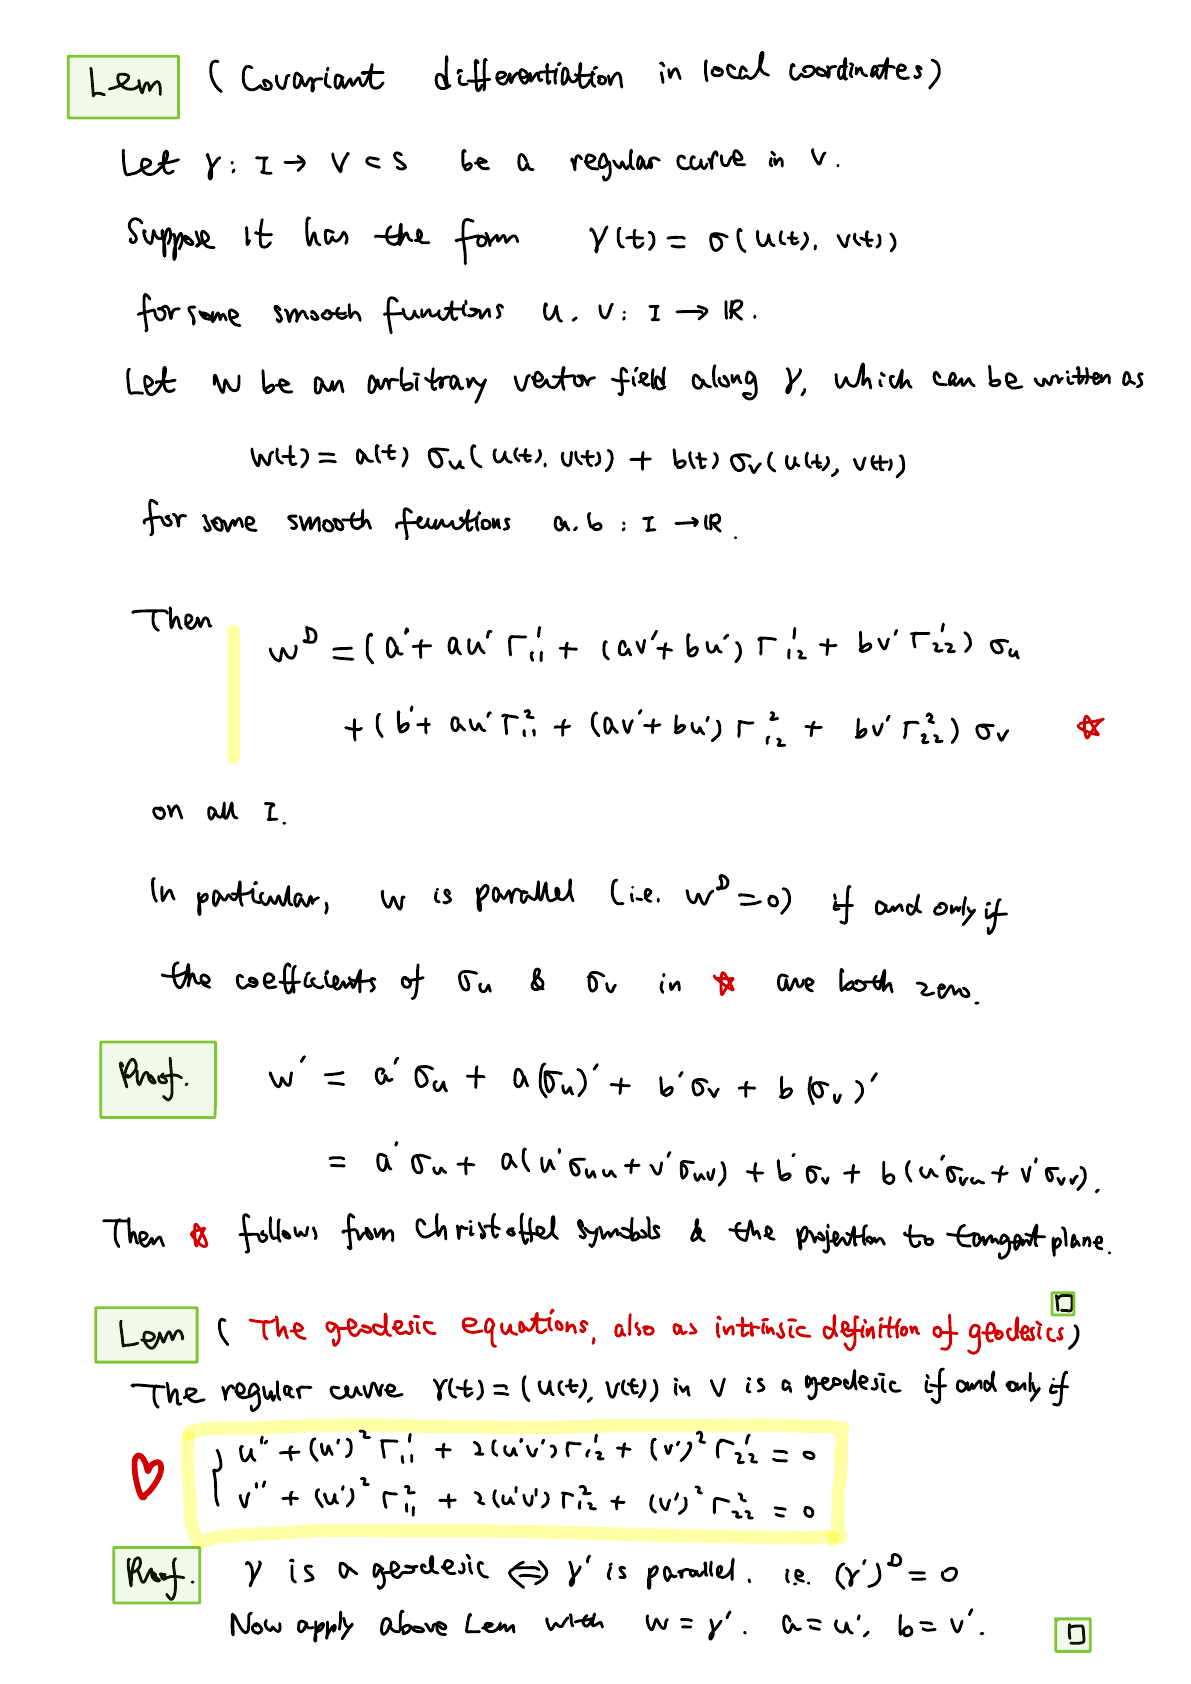 Lem ( Covariant differentiation in local coordinates)
Let γ: I → V ⊂ S be a regular curve in V.
Suppose it has the form γ(t) = σ(u(t). v(t))
for some smooth functions u. v: I → ℝ.
Let w be an arbitrary vector field along γ, which can be written as
w(t) = a(t) σᵤ(u(t). v(t)) + b(t) σᵥ(u(t), v(t))
for some smooth functions a.b : I → ℝ.
Then
w^D = (a' + au' Γ₁₁¹ + (av' + bu') Γ₁₂¹ + bv' Γ₂₂¹) σᵤ
+ (b' + au' Γ₁₁² + (av' + bu') Γ₁₂² + bv' Γ₂₂²) σᵥ ☆
on all I.
In particular, w is parallel (i.e. w^D = 0) if and only if
the coefficients of σᵤ & σᵥ in ☆ are both zero.
Proof. w' = a' σᵤ + a(σᵤ)' + b' σᵥ + b(σᵥ)'
= a' σᵤ + a(u' σᵤᵤ + v' σᵤᵥ) + b' σᵥ + b(u' σᵥᵤ + v' σᵥᵥ).
Then ☆ follows from Christoffel symbols & the projection to tangent plane.
□
Lem ( The geodesic equations, also as intrinsic definition of geodesics)
The regular curve γ(t) = (u(t), v(t)) in V is a geodesic if and only if
♡ { u'' + (u')² Γ₁₁¹ + 2(u'v') Γ₁₂¹ + (v')² Γ₂₂¹ = 0
v'' + (u')² Γ₁₁² + 2(u'v') Γ₁₂² + (v')² Γ₂₂² = 0
Proof. γ is a geodesic ⇔ γ' is parallel. i.e. (γ')^D = 0
Now apply above Lem with w = γ'. a = u', b = v'.
□